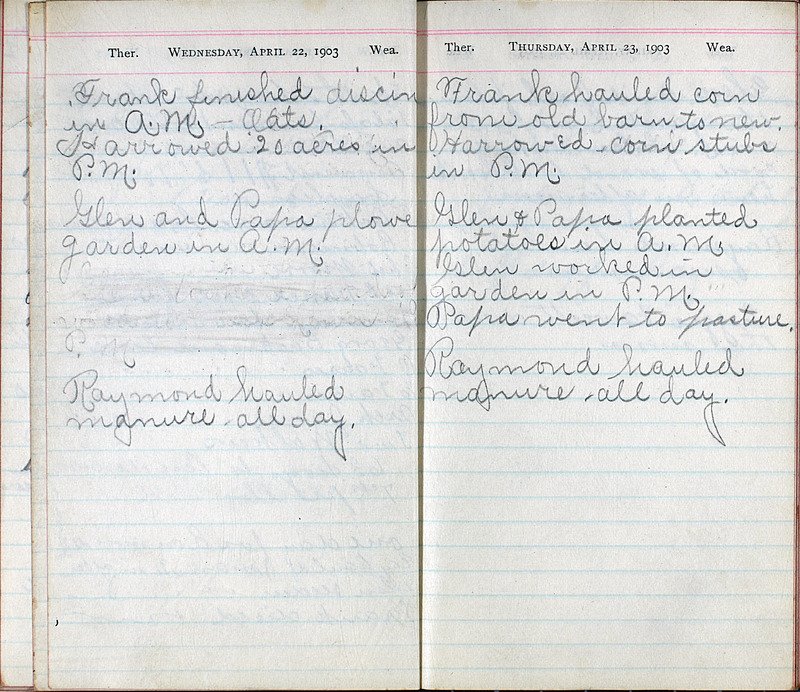 Ther. WEDNESDAY, APRIL 22, 1903 Wea.
Frank finished discin
in A.M. – Oats.
Harrowed 20 acres in
P.M.
Glen and Papa plowe
garden in A.M.
P.M.
Raymond hauled
manure all day.
Ther. THURSDAY, APRIL 23, 1903 Wea.
Frank hauled corn
from old barn to new.
Harrowed corn stubs
in P.M.
Glen & Papa planted
potatoes in A.M.
Glen worked in
garden in P.M.
Papa went to pasture.
Raymond hauled
manure all day.